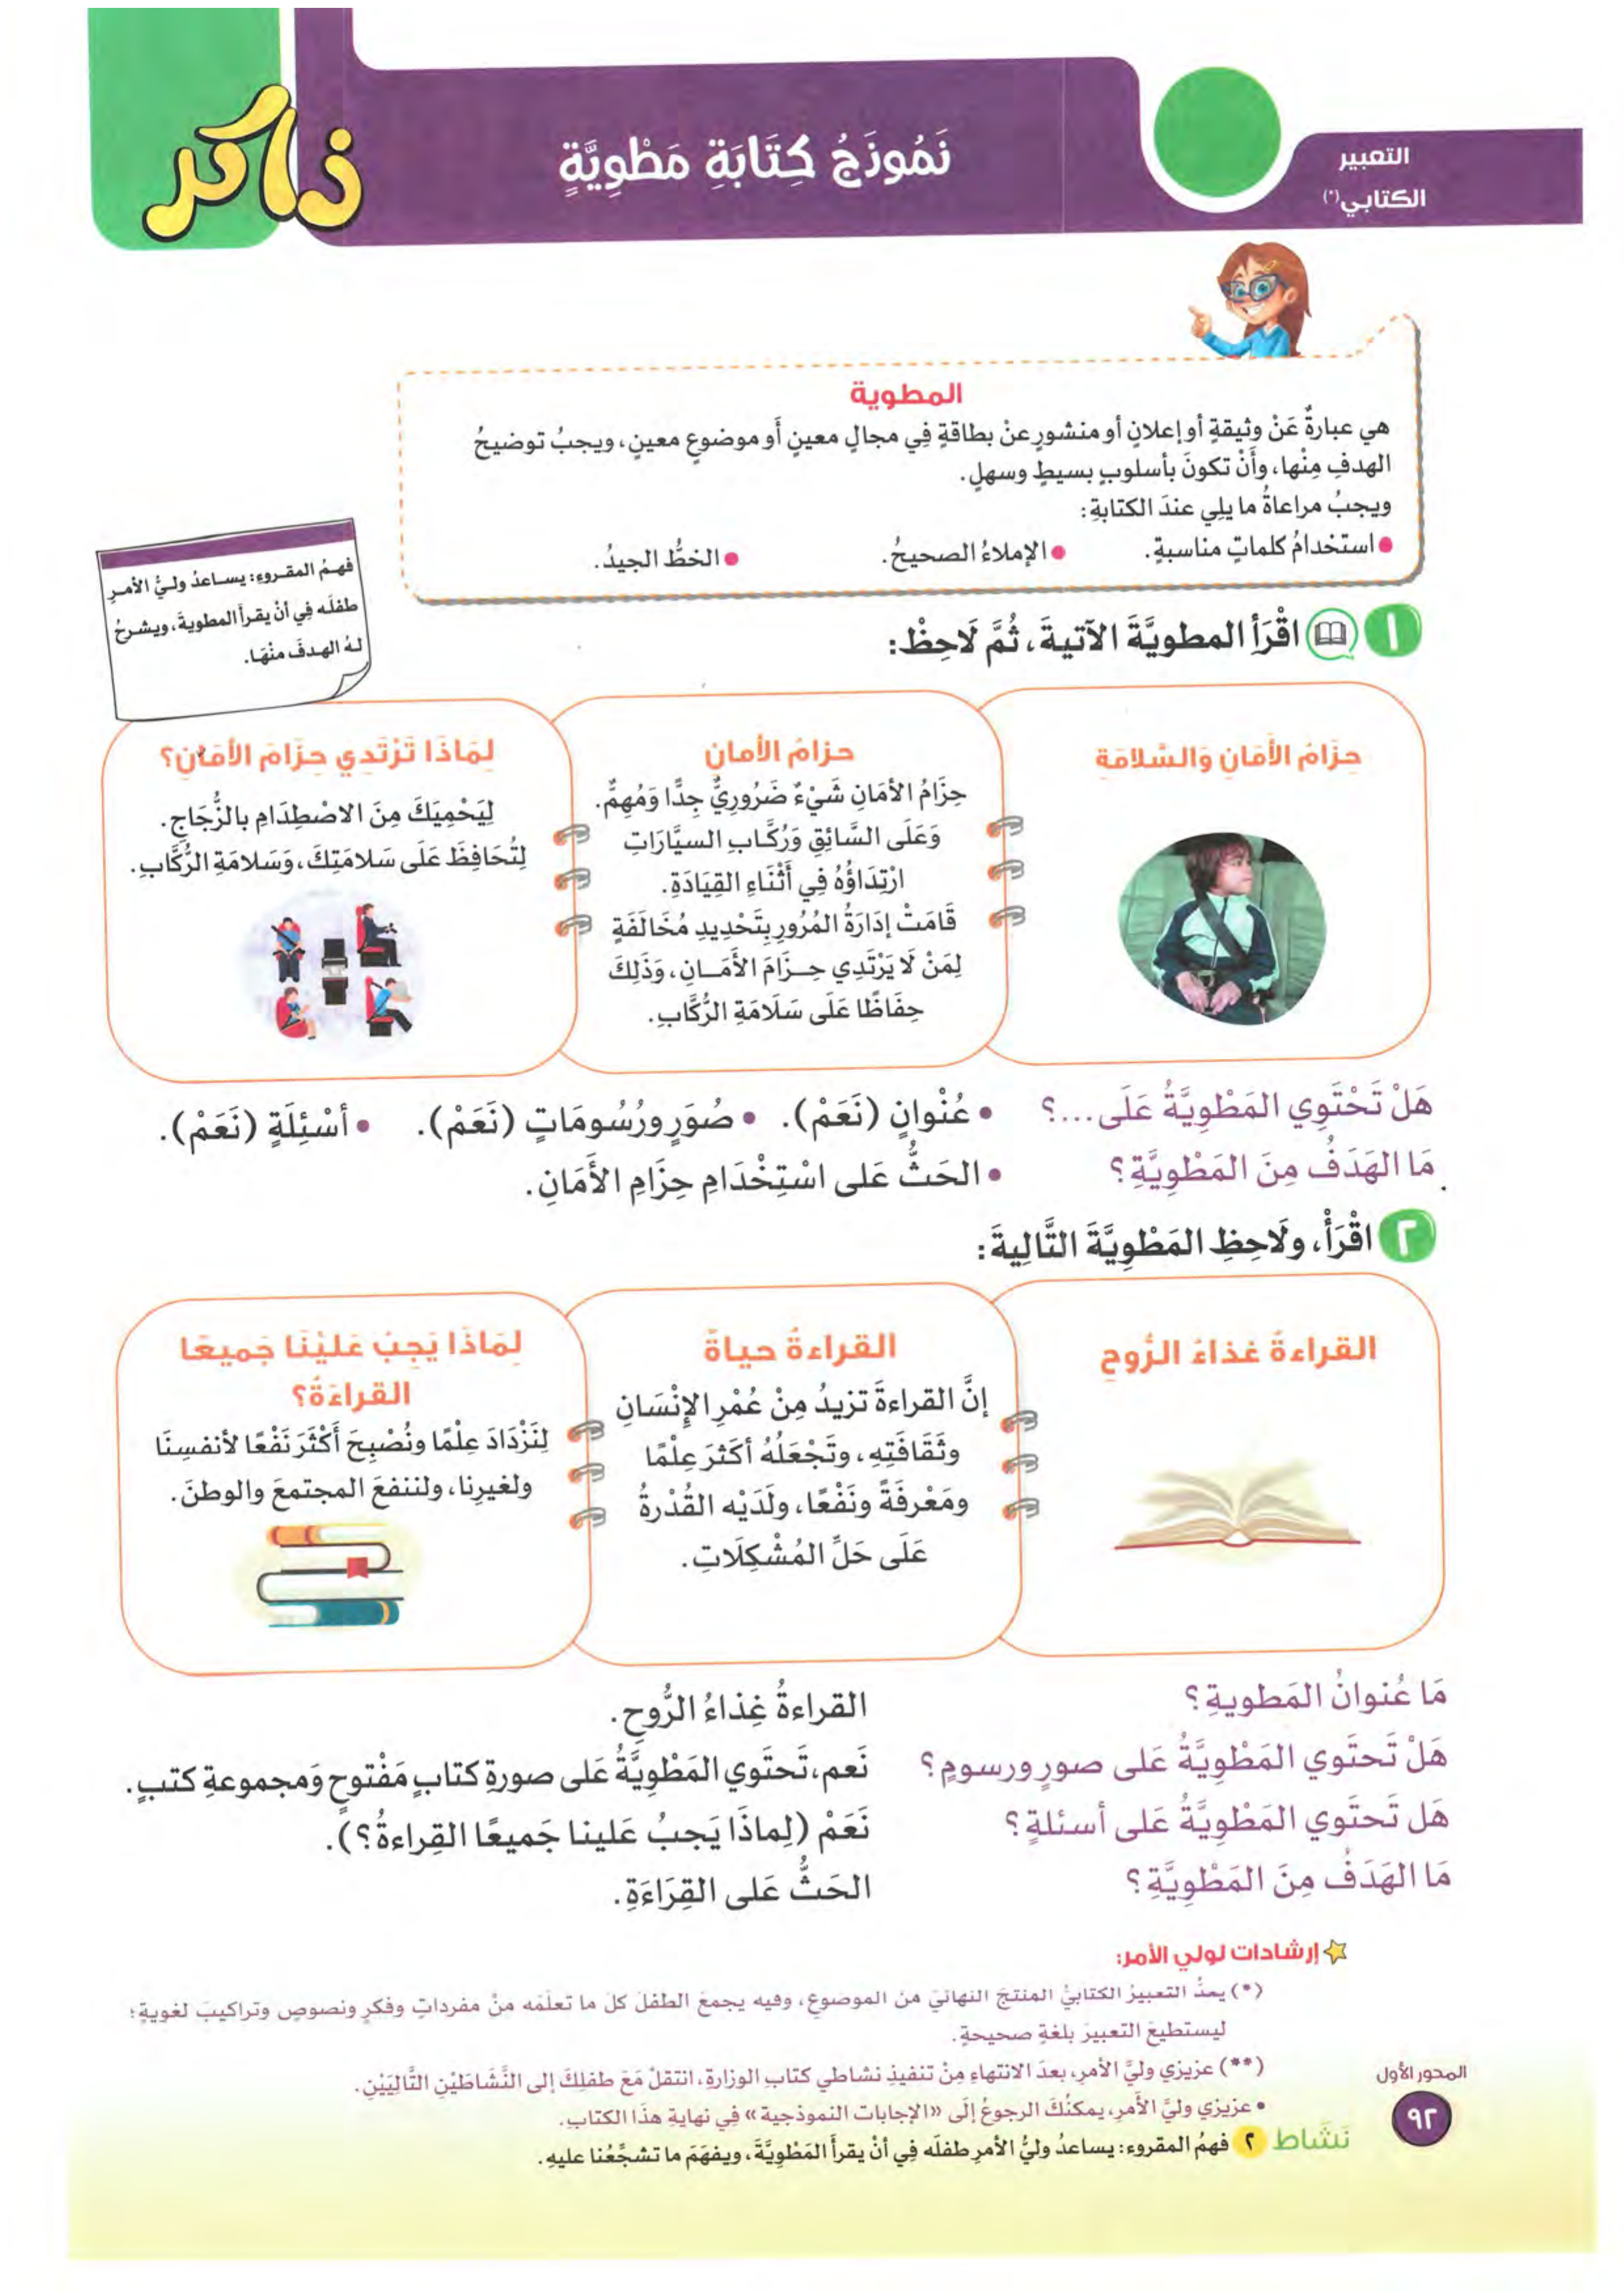 التعبير
الكتابي(*)
نَمُوذَجُ كِتَابَةِ مَطْوِيَّةٍ
ذاكر
المطوية
هي عبارةٌ عَنْ وثيقةٍ أو إعلانٍ أو منشورٍ عنْ بطاقةٍ فِي مجالٍ معينٍ أَو موضوعٍ معينٍ، ويجبُ توضيحُ
الهدفِ مِنْها، وأَنْ تكونَ بأسلوبٍ بسيطٍ وسهلٍ.
ويجبُ مراعاةُ ما يلِي عندَ الكتابةِ:
• استخدامُ كلماتٍ مناسبةٍ. • الإملاءُ الصحيحُ. • الخطُّ الجيدُ.
فهمُ المقروءِ: يساعدُ وليُّ الأمرِ
طفلَه فِي أنْ يقرأَ المطويةَ، ويشرحُ
لهُ الهدفَ منْهَا.
١ اقْرَأِ المطويَّةَ الآتيةَ، ثُمَّ لَاحِظْ:
حِزَامُ الأَمَانِ وَالسَّلامَةِ
حزامُ الأمانِ
حِزَامُ الأمَانِ شَيْءٌ ضَرُورِيٌّ جِدًّا وَمُهِمٌّ.
وَعَلَى السَّائِقِ وَرُكَّابِ السيَّارَاتِ
ارْتِدَاؤُهُ فِي أَثْنَاءِ القِيَادَةِ.
قَامَتْ إدَارَةُ المُرُورِ بِتَحْدِيدِ مُخَالَفَةٍ
لِمَنْ لَا يَرْتَدِي حِزَامَ الأَمَانِ، وَذَلِكَ
حِفَاظًا عَلَى سَلَامَةِ الرُّكَّابِ.
لِمَاذَا تَرْتَدِي حِزَامَ الأَمَانِ؟
لِيَحْمِيَكَ مِنَ الاصْطِدَامِ بالزُّجَاجِ.
لِتُحَافِظَ عَلَى سَلامَتِكَ، وَسَلامَةِ الرُّكَّابِ.
هَلْ تَحْتَوِي المَطْوِيَّةُ عَلَى...؟ • عُنْوانٍ (نَعَمْ). • صُوَرٍ ورُسُومَاتٍ (نَعَمْ). • أسْئِلَةٍ (نَعَمْ).
مَا الهَدَفُ مِنَ المَطْوِيَّةِ؟ • الحَثُّ عَلى اسْتِخْدَامِ حِزَامِ الأَمَانِ.
٢ اقْرَأْ، ولَاحِظِ المَطْوِيَّةَ التَّالِيةَ:
القراءةُ غذاءُ الرُّوحِ
القراءةُ حياةٌ
إنَّ القراءةَ تزيدُ مِنْ عُمْرِ الإنْسَانِ
وثَقَافَتِهِ، وتَجْعَلُهُ أكثَرَ عِلْمًا
ومَعْرِفَةً ونَفْعًا، ولَدَيْه القُدْرةُ
عَلَى حَلِّ المُشْكِلَاتِ.
لِمَاذَا يَجِبُ عَلَيْنَا جَمِيعًا
القراءَةُ؟
لِنَزْدَادَ عِلْمًا ونُصْبِحَ أَكْثَرَ نَفْعًا لأنفسِنَا
ولغيرِنا، ولننفعَ المجتمعَ والوطنَ.
مَا عُنوانُ المَطويةِ؟ القراءةُ غِذاءُ الرُّوحِ.
هَلْ تَحتَوي المَطْوِيَّةُ عَلى صورٍ ورسومٍ؟ نَعم، تَحتَوي المَطْوِيَّةُ عَلى صورةِ كتابٍ مَفْتوحٍ وَمجموعةِ كتبٍ.
هَل تَحتَوي المَطْوِيَّةُ عَلى أسئلةٍ؟ نَعَمْ (لِماذَا يَجبُ عَلينا جَميعًا القِراءةُ؟).
مَا الهَدَفُ مِنَ المَطْوِيَّةِ؟ الحَثُّ عَلى القِرَاءَةِ.
إرشادات لولي الأمر:
(*) يعدُّ التعبيرُ الكتابيُّ المنتجَ النهائيَّ منَ الموضوعِ، وفيه يجمعُ الطفلُ كلَّ ما تعلَّمَه منْ مفرداتٍ وفكرٍ ونصوصٍ وتراكيبَ لغويةٍ؛
ليستطيعَ التعبيرَ بلغةٍ صحيحةٍ.
(**) عزيزي وليَّ الأمرِ، بعدَ الانتهاءِ مِنْ تنفيذِ نشاطي كتابِ الوزارةِ، انتقلْ مَعَ طفلِكَ إلى النَّشَاطَيْنِ التَّالِيَيْنِ.
• عزيزي وليَّ الأمرِ، يمكنُكَ الرجوعُ إلَى «الإجاباتِ النموذجيةِ» فِي نهايةِ هذَا الكتابِ.
نَشَاط ٢ فهمُ المقروءِ: يساعدُ وليُّ الأمرِ طفلَه فِي أنْ يقرأَ المَطْوِيَّةَ، ويفهَمَ ما تشجِّعُنا عليهِ.
المحور الأول
٩٢